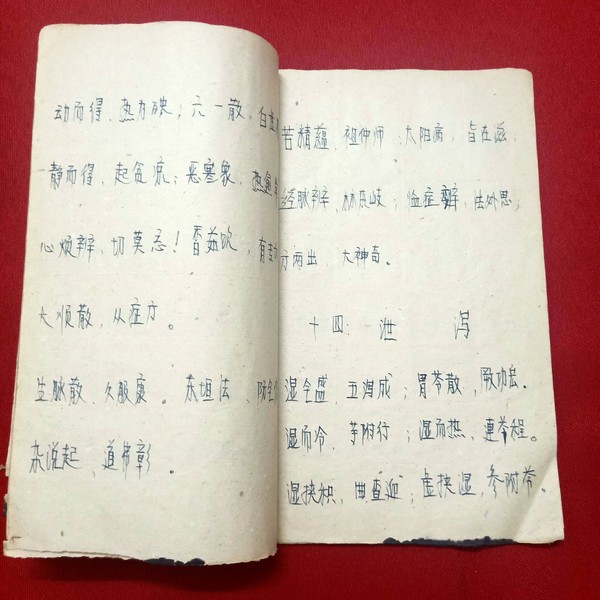 动而得、热为殃；六一散、白虎
静而得、起贪凉；恶寒象、热
心烦辨、切莫忘！香茹饮、有
大顺散、从症方。
生脉散、久服康。东垣法、防
杂说起、道弗彰。
苦精蕴、祖仲师；太阳病、旨在滋
经脉辨、林氏歧；临症辨、法外思；
方两出、大神奇。
十四：泄 泻
湿令盛、五泻成；胃苓散、厥功宏。
湿而冷、萸附行；湿而热、连芩程。
湿挟积、曲查迎；虚挟湿、参附苓。